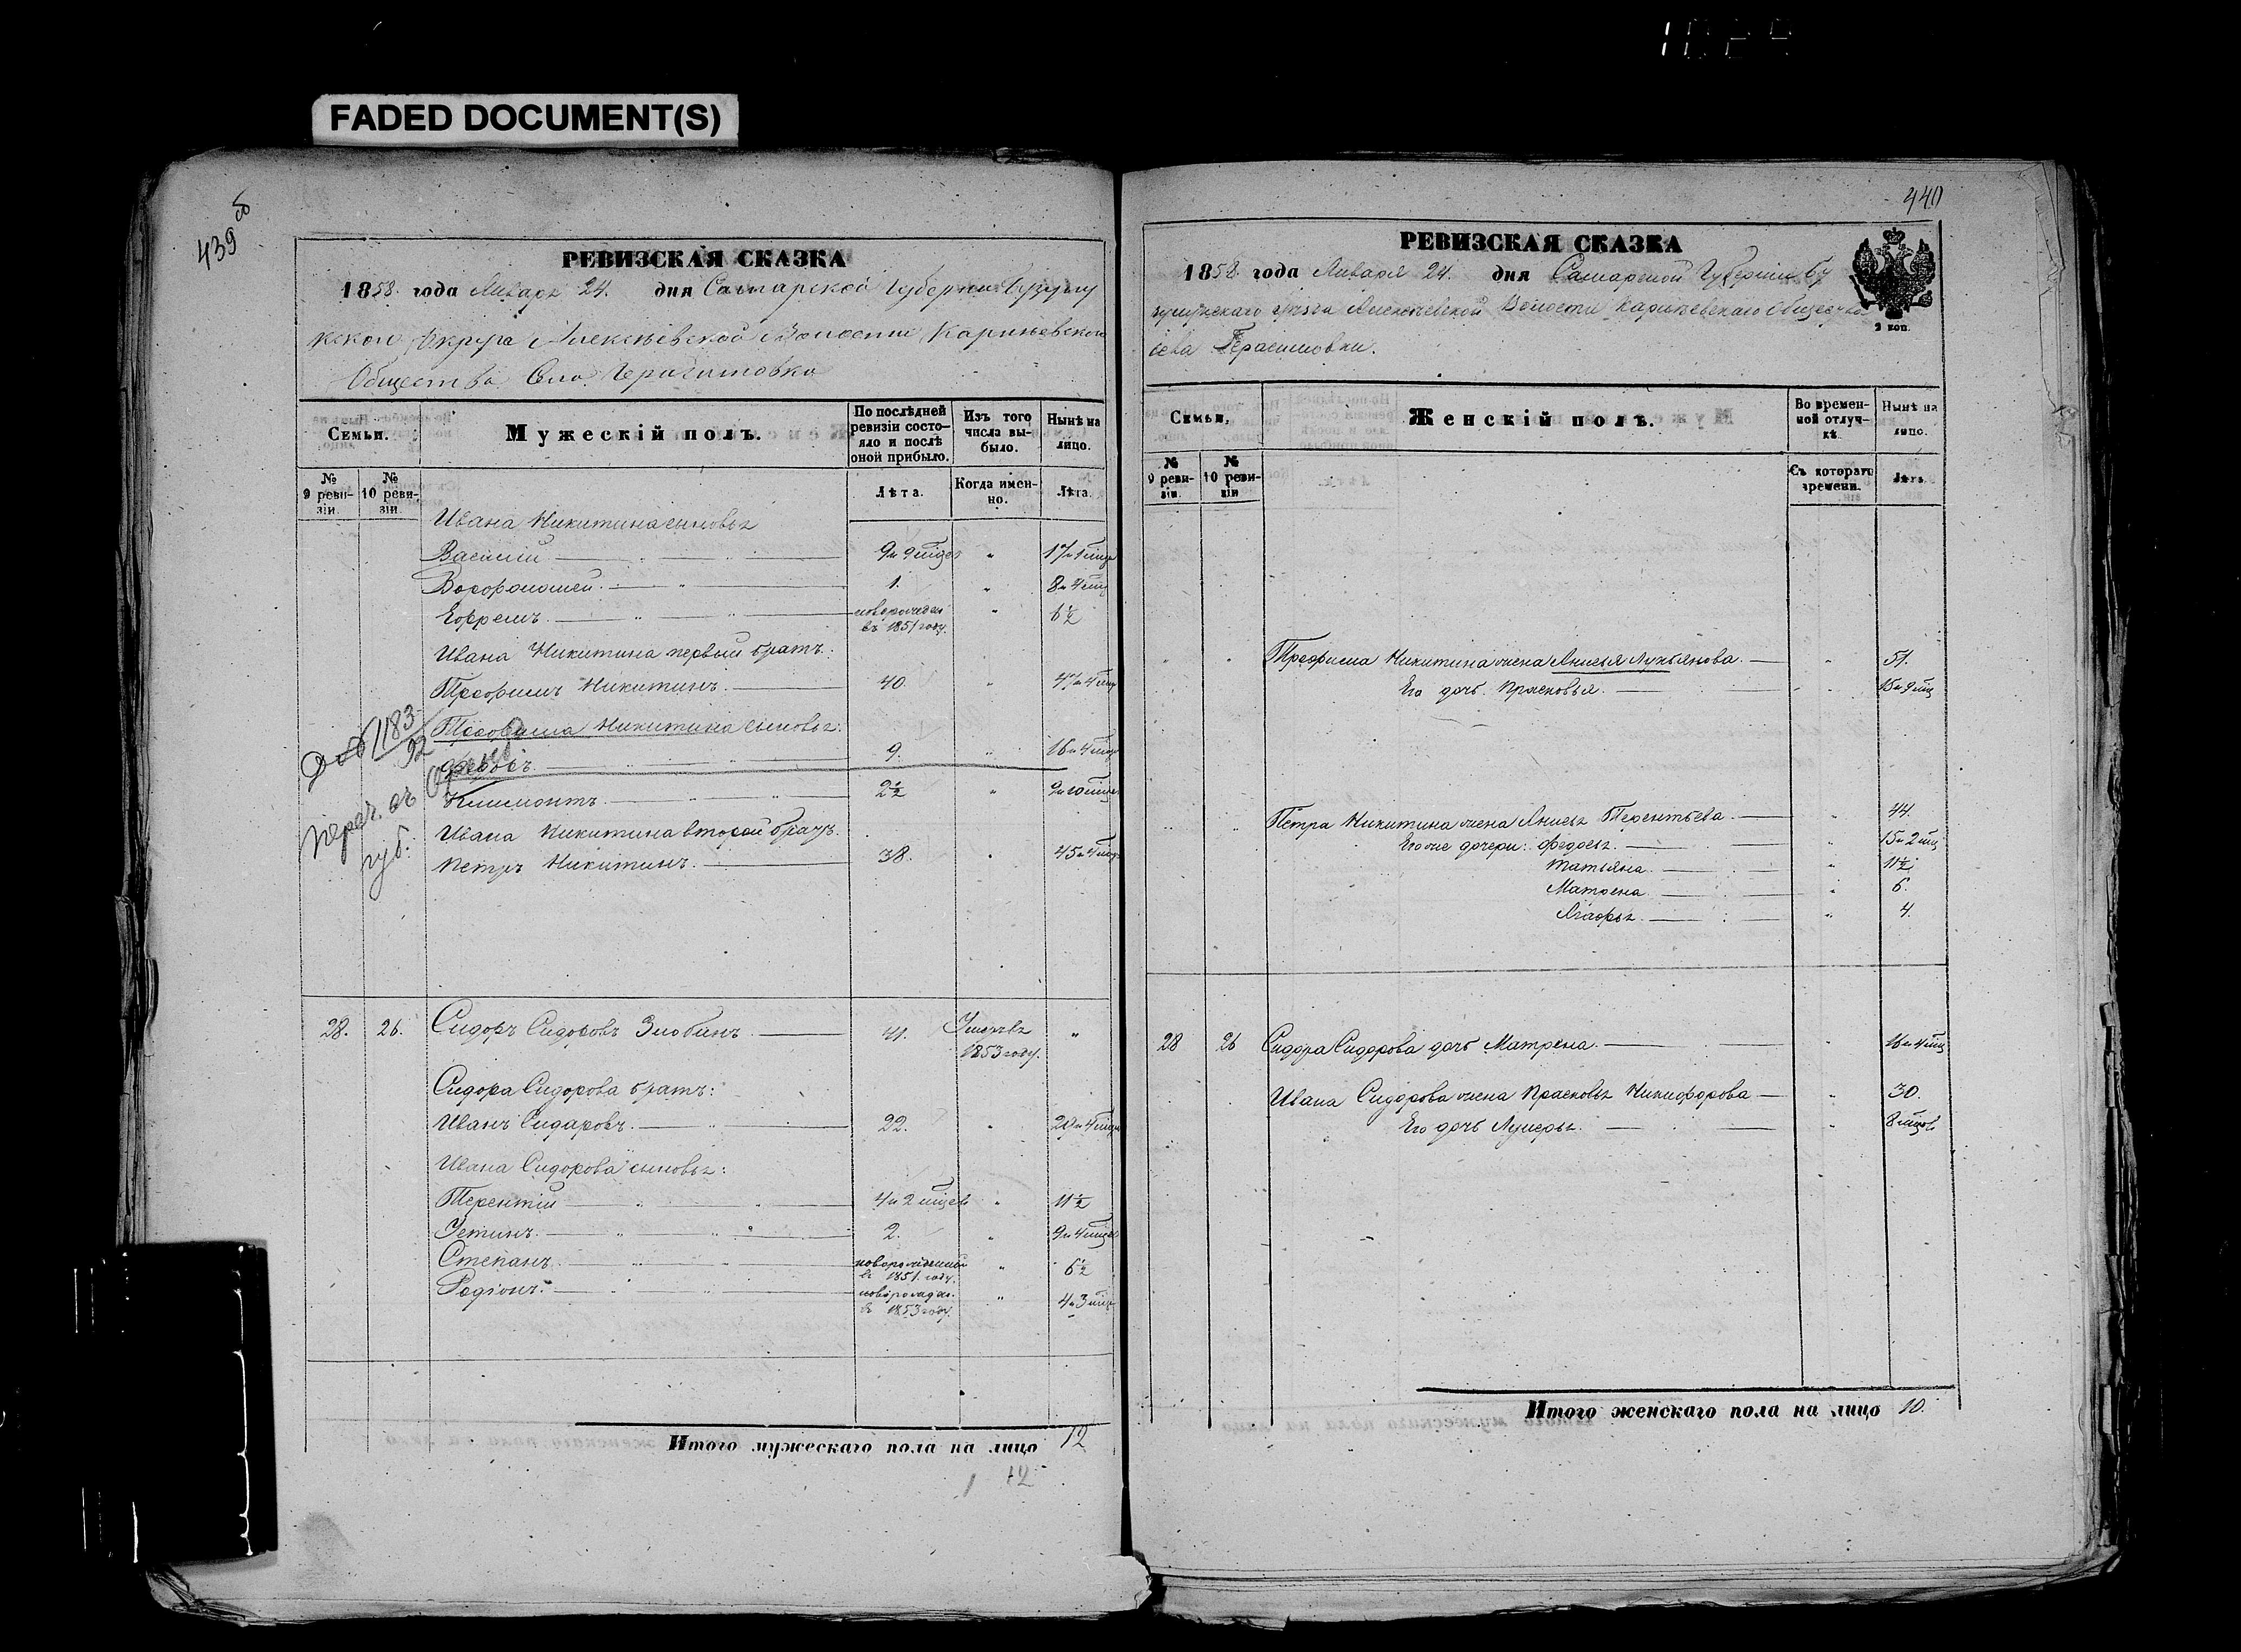 1029
FADED DOCUMENT(S)
439 об
РЕВИЗСКАЯ СКАЗКА
1858 года Января 24. дня Самарской Губернии Бузулу
кского Округа Алексѣевской Волости Каринѣевского
Общества Села Герасимовка
Семьи.
Мужескій полъ.
По послѣдней ревизіи состояло и послѣ оной прибыло.
Изъ того числа выбыло.
Нынѣ на лицо.
№ 9 ревизіи.
№ 10 ревизіи.
Лѣта.
Когда именно.
Лѣта.
Ивана Никитина сыновья
Василій 9 и 9 мѣцев " 17 и 1 мѣц
1. " 8 и 4 мѣц
Ефремъ. новорожден " 6½
въ 1851 году.
Ивана Никитина первый братъ:
Трофимъ Никитинъ. 40. " 47 и 4 мѣц
Трофима Никитина сыновья:
9. " 16 и 4 мѣц
Климонтъ. 2½ " 9 и 10 мѣц
Ивана Никитина второй братъ.
Петръ Никитинъ. 38. " 45 и 4 мѣц
1183
92
губ.
28. 26. Сидоръ Сидоровъ Злобинъ. 41. Умеръ въ "
1853 году.
Сидора Сидорова братъ:
Иванъ Сидоровъ. 22. " 29 и 4 мѣц
Ивана Сидорова сыновья:
Терентій 4 и 2 мѣцев " 11½
Устинъ. 2. " 9 и 4 мѣцев
Степанъ. новорожденный " 6½
въ 1851 году.
Родіонъ. новорожден. " 4 и 3 мѣц
въ 1853 году.
Итого мужескаго пола на лицо 12
1 12
440
РЕВИЗСКАЯ СКАЗКА
1858 года Января 24. дня Самарской Губерніи Бу
зулукскаго округа Алексѣевской Волости Каринѣевскаго Общества
села Герасимовки.
2 коп.
Семьи.
Женскій полъ.
Во временной отлучкѣ.
Нынѣ на лицо.
№ 9 ревизіи.
№ 10 ревизіи
Съ котораго времени.
Лѣта.
" " Трофима Никитина жена Анисья Лукьянова. " 51.
Его дочь Прасковья. " 15 и 9 мѣц
" " Петра Никитина жена Анисья Терентьева. " 44.
Его же дочери: Федосья. " 15 и 2 мѣц
Татьяна. " 11½
Матрена. " 6.
Агафья. " 4.
28 26 Сидора Сидорова дочь Матрена. " 16 и 4 мѣц
Ивана Сидорова жена Прасковья Никифорова " 30.
Его дочь Лукерья. " 8 мѣцов
Итого женскаго пола на лицо 10.